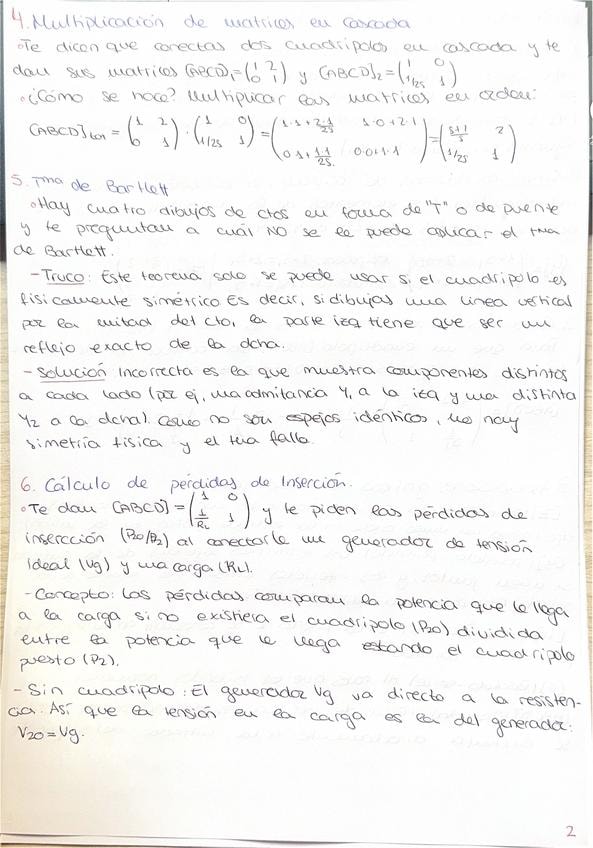 4. Multiplicación de matrices en cascada
• Te dicen que conectas dos cuadripolos en cascada y te
dan sus matrices [ABCD]₁ = (1 2; 0 1) y [ABCD]₂ = (1 0; 1/25 1)
• ¿Cómo se hace? Multiplicar las matrices en orden:
[ABCD]tot = (1 2; 0 1) · (1 0; 1/25 1) = (1·1+2·1/25 1·0+2·1; 0·1+1·1/25 0·0+1·1) = ( 2; 1/25 1)
5. Tma de Bartlett
• Hay cuatro dibujos de ctos en forma de "T" o de puente
y te preguntan a cuál NO se le puede aplicar el tma
de Bartlett.
- Truco: Este teorema solo se puede usar si el cuadripolo es
físicamente simétrico Es decir, si dibujas una línea vertical
por la mitad del cto, la parte izq tiene que ser un
reflejo exacto de la dcha.
- Solución Incorrecta es la que muestra componentes distintos
a cada lado (por ej, una admitancia Y₁ a la izq y una distinta
Y₂ a la dcha). Como no son espejos idénticos, no hay
simetría física y el tma falla.
6. Cálculo de pérdidas de Inserción.
• Te dan [ABCD] = (1 0; 1/RL 1) y te piden las pérdidas de
insercción (P20/P2) al conectarle un generador de tensión
ideal (Vg) y una carga (RL).
- Concepto: Las pérdidas comparan la potencia que le llega
a la carga si no existiera el cuadripolo (P20) dividida
entre la potencia que le llega estando el cuadripolo
puesto (P2).
- Sin cuadripolo: El generador Vg va directo a la resisten-
cia. Así que la tensión en la carga es la del generador:
V20 = Vg.
2